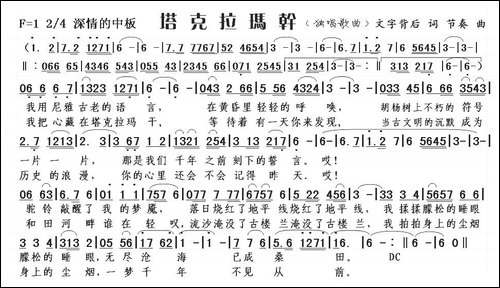 F=1 2/4 深情的中板 塔克拉瑪幹 (演唱歌曲) 文字背后 词 节奏 曲
(1. 2 7. 2 1271 | 6 - | 6 - | 7. 7 7767 | 52 4654 | 3 - | 3 - | 6 - | 6. 7 1. 2 | 7 6 5645 | 3 - | 3 -
‖: 066 65 | 4346 543 | 055 45 | 2345 66 | 071 2545 | 31 254 | 3 - | 6. 7 6 | 6 - :‖: 313 217 | 6 - | 6 - )
06 6 6 7 | 1323 1231 | 7 6 | 6 - | 02 2 6 | 56 4324 | 3 - | 3 - | 02 2 | 66 3543
我用尼雅古老的语 言， 在黄昏里轻轻的呼 唤， 胡杨树上不朽的 符号
我把心藏在塔克拉玛 干， 等待着有一天你来发现， 当古文明的沉默 成为
2. 7 1213 | 2. 3 | 3 - | 63 3 67 | 1 2 1321 | 254 3213 | 2 1 2 | 3 - | 6 - | 6. 7 1. 2 | 7 6 | 5645 | 3 - | 3 -
一片一片， 那是我们千年之前刻下的誓 言。哎！
历史的浪漫， 你的心里还会不会记得昨 天。哎！
06 63 | 6. 7 6 | 01 1 1 | 757 6 | 077 7 77 | 6757 6 | 5 22 456 | 3 - | 33 3 4 | 5657 6 6
驼铃敲醒了我的梦魇， 落日烧红了地平线烧红了地平线，我揉揉朦松的睡眼
和田河畔谁在轻叹，流沙淹没了古楼兰淹没了古楼兰，我拍拍身上的尘烟
3 3 4 313 | 2 05 56 | 17 62 | 2 - | 77 6 751 | 7. 5 6. 5 | 6 1271 | 16. | 6 - :‖ 6 - | 6 0 ‖
朦松的睡眼，无尽沧海 已成桑 田。 DC
身上的尘烟，一梦千年 不见从 前。